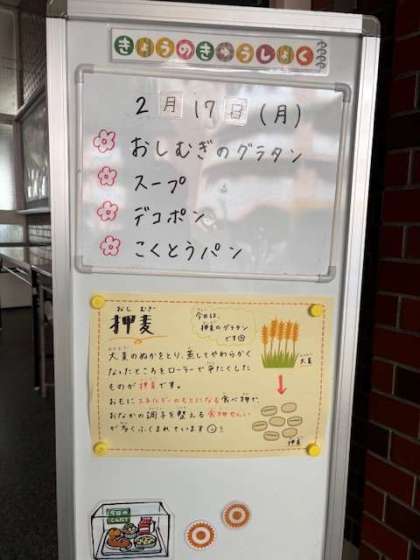 きょうのきゅうしょく
2月17日(月)
おしむぎのグラタン
スープ
デコポン
こくとうパン
おし むぎ
押麦
今日は、
押麦のグラタン
です
大麦のぬかをとり、蒸してやわらかく
なったところをローラーで平たくした
ものが押麦です。
おもにエネルギーのもとになる食べ物で、
おなかの調子を整える食物せんい
が多くふくまれています
大麦
押麦